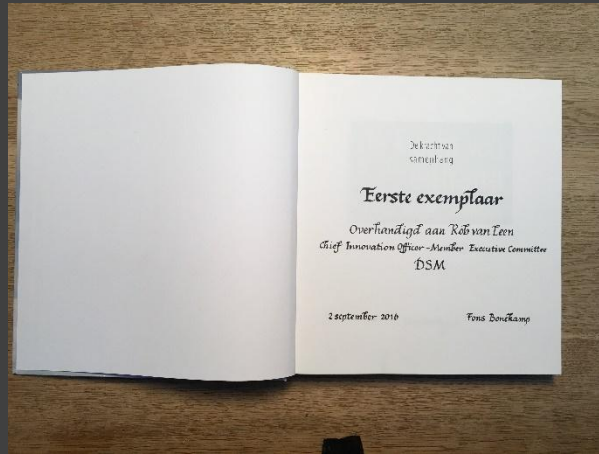 De kracht van
samenhang
Eerste exemplaar
Overhandigd aan Rob van Leen
Chief Innovation Officer - Member Executive Committee
DSM
2 september 2016
Fons Bonekamp